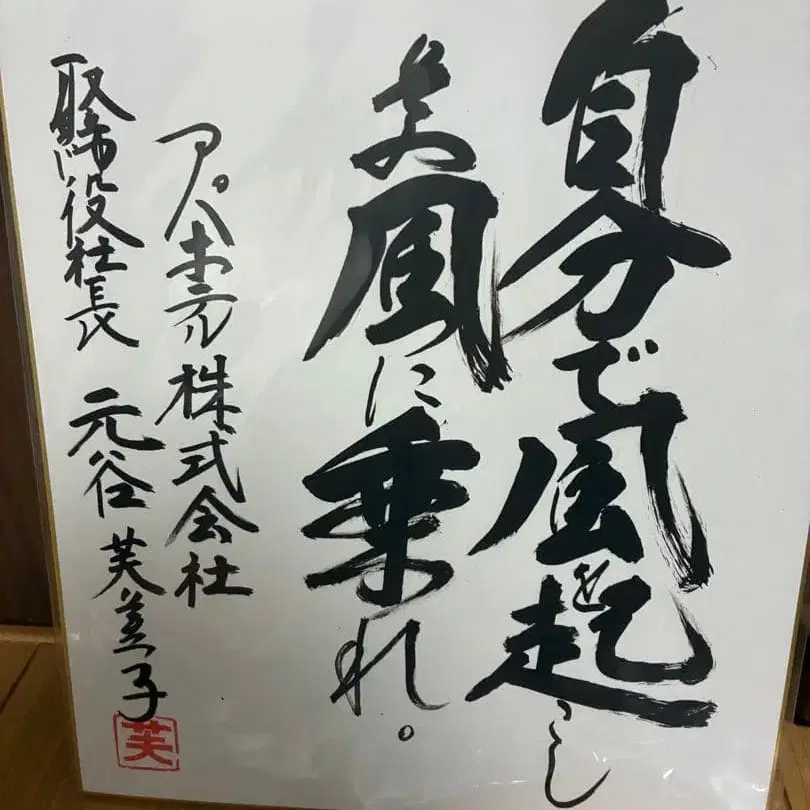 自分で風を起こし
その風に乗れ。
アパホテル株式会社
取締役社長 元谷 芙美子
芙